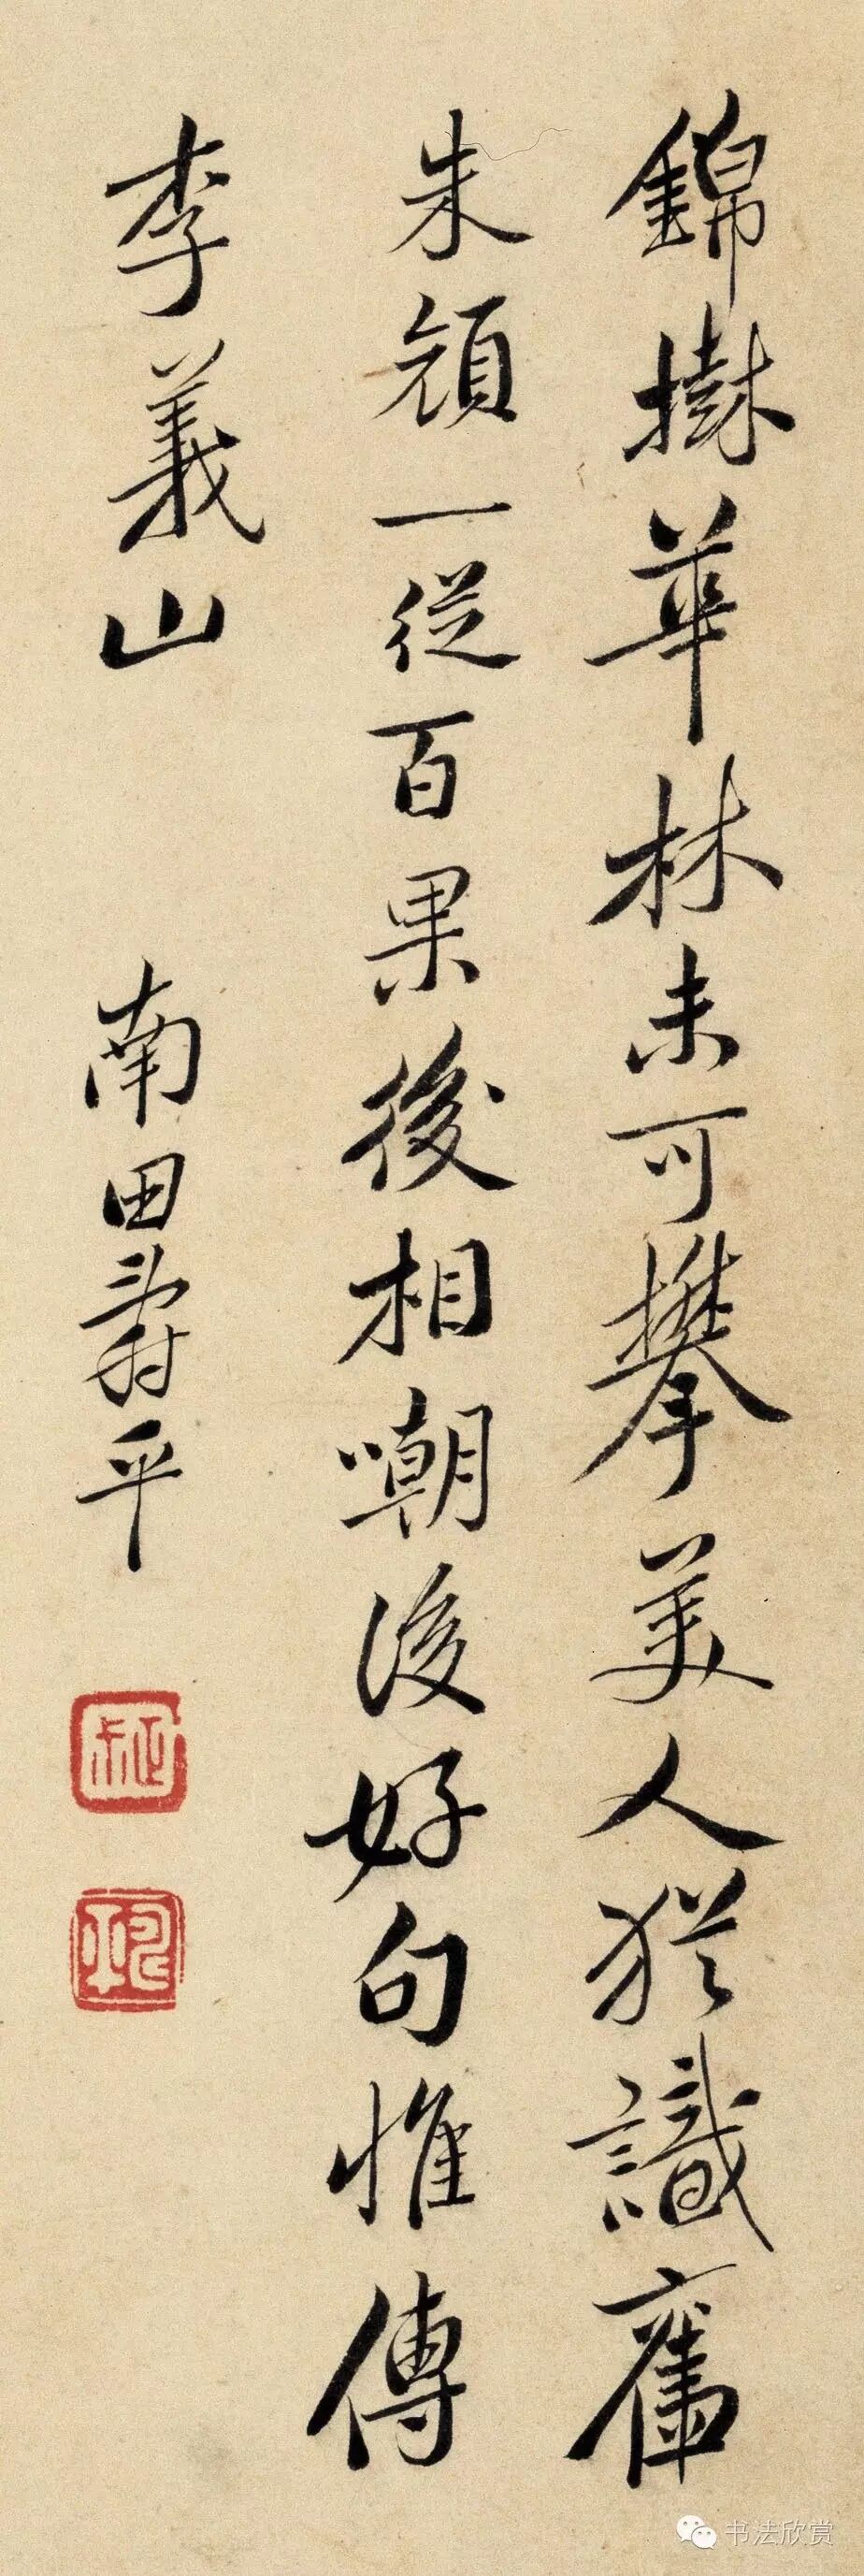 錦樹華林未可攀美人猶識舊
朱顏一從百果後相嘲後好句惟傳
李義山
南田壽平
书法欣赏